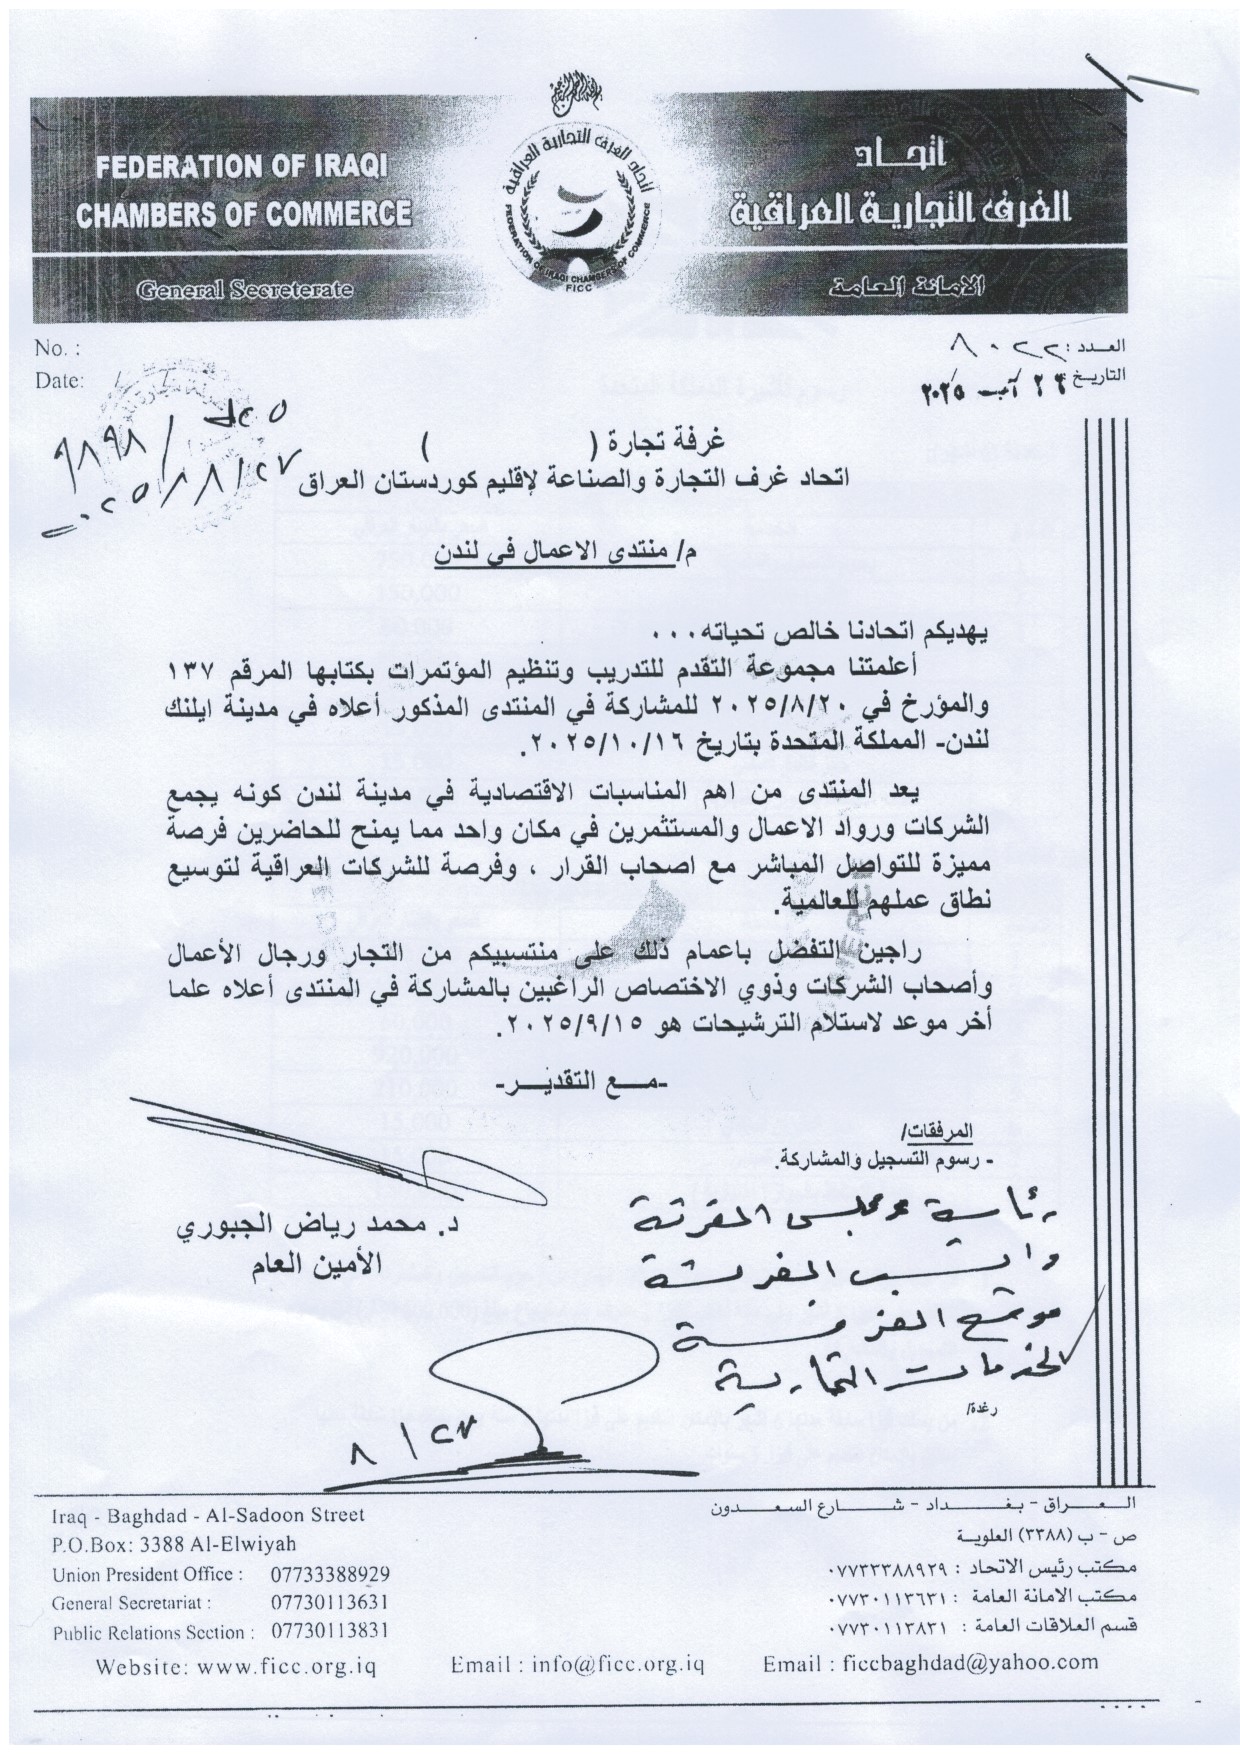 FEDERATION OF IRAQI
CHAMBERS OF COMMERCE
General Secreterate
اتحاد الغرف التجارية العراقية
FEDERATION OF IRAQI CHAMBERS OF COMMERCE
FICC
اتحـــاد
الغرف التجارية العراقية
الامانة العامة
No. :
Date: / /
العـــدد : ٨٠٢٢
التاريـخ : ٢٤ / آب / ٢٠٢٥
٩٨٩٨ /
٢٠٢٥/٨/٢٧
غرفة تجارة ( )
اتحاد غرف التجارة والصناعة لإقليم كوردستان العراق
م/ منتدى الاعمال في لندن
يهديكم اتحادنا خالص تحياته...
أعلمتنا مجموعة التقدم للتدريب وتنظيم المؤتمرات بكتابها المرقم ١٣٧
والمؤرخ في ٢٠٢٥/٨/٢٠ للمشاركة في المنتدى المذكور أعلاه في مدينة ايلنك
لندن- المملكة المتحدة بتاريخ ٢٠٢٥/١٠/١٦.
يعد المنتدى من اهم المناسبات الاقتصادية في مدينة لندن كونه يجمع
الشركات ورواد الاعمال والمستثمرين في مكان واحد مما يمنح للحاضرين فرصة
مميزة للتواصل المباشر مع اصحاب القرار ، وفرصة للشركات العراقية لتوسيع
نطاق عملهم للعالمية.
راجين التفضل باعمام ذلك على منتسبيكم من التجار ورجال الأعمال
وأصحاب الشركات وذوي الاختصاص الراغبين بالمشاركة في المنتدى أعلاه علما
أخر موعد لاستلام الترشيحات هو ٢٠٢٥/٩/١٥.
-مـــع التقديـــر-
المرفقات/
- رسوم التسجيل والمشاركة.
د. محمد رياض الجبوري
الأمين العام
رئاسة مجلس الغرفة
موقع الغرفة
الخدمات التجارية
رغدة/
٨ / ٢٧
Iraq - Baghdad - Al-Sadoon Street
P.O.Box: 3388 Al-Elwiyah
Union President Office : 07733388929
General Secretariat : 07730113631
Public Relations Section : 07730113831
العـــراق - بغـــداد - شـــارع السعـــدون
ص - ب (٣٣٨٨) العلوية
مكتب رئيس الاتحاد : ٠٧٧٣٣٣٨٨٩٢٩
مكتب الامانة العامة : ٠٧٧٣٠١١٣٦٣١
قسم العلاقات العامة : ٠٧٧٣٠١١٣٨٣١
Website: www.ficc.org.iq Email : info@ficc.org.iq Email : ficcbaghdad@yahoo.com